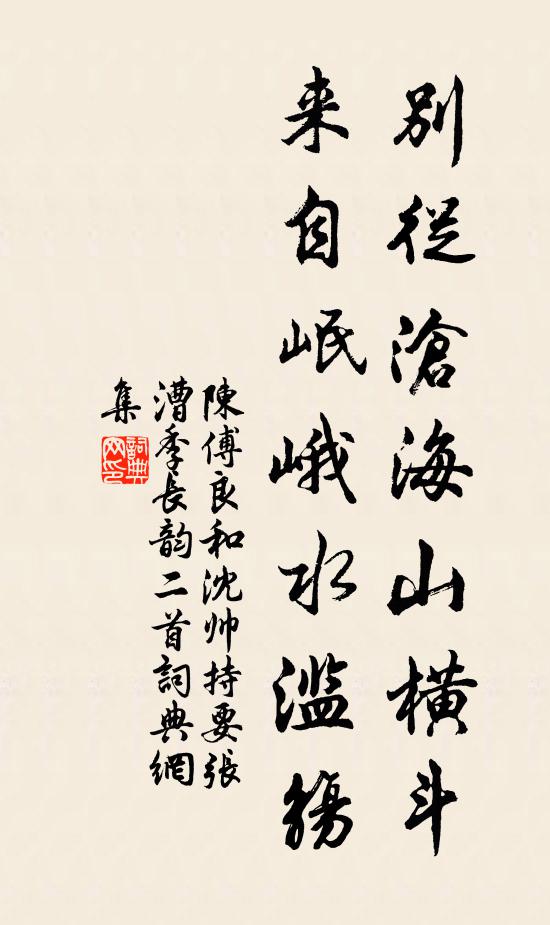 別從滄海山横斗
来自岷峨水滥觴
陳傅良和沈帅持要張
漕季長韵二首詞典網
集
詞典网印